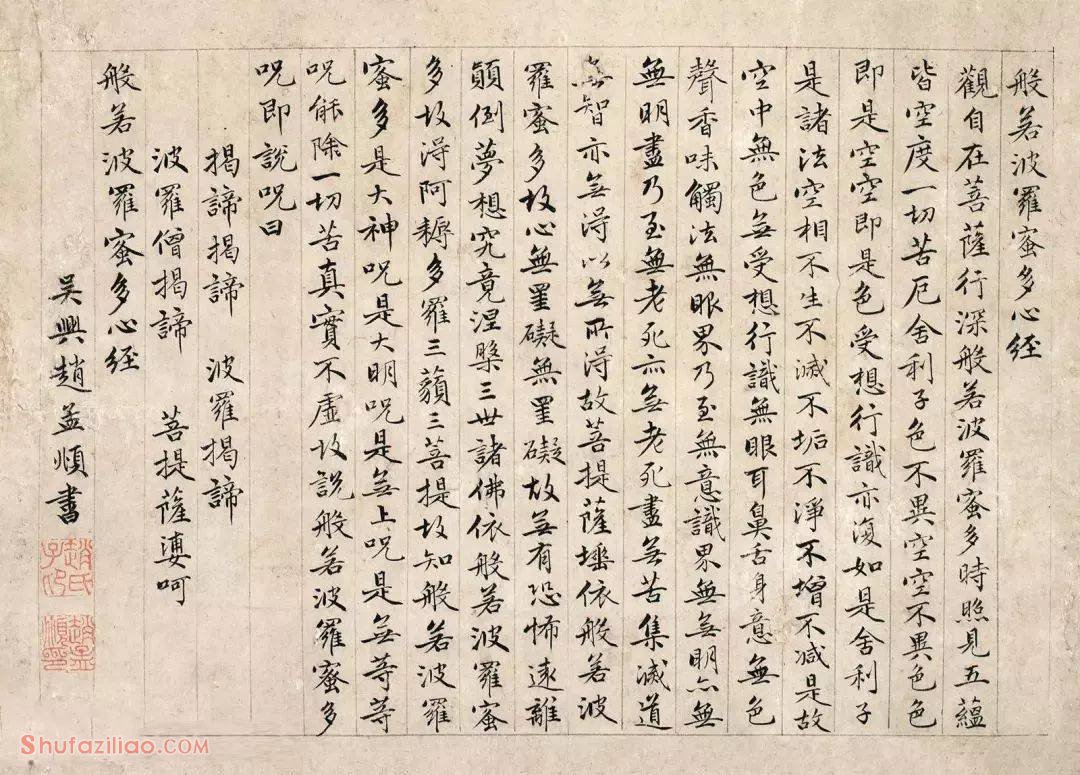 般若波羅蜜多心經
觀自在菩薩行深般若波羅蜜多時照見五蘊
皆空度一切苦厄舍利子色不異空空不異色色
即是空空即是色受想行識亦復如是舍利子
是諸法空相不生不滅不垢不淨不增不減是故
空中無色無受想行識無眼耳鼻舌身意無色
聲香味觸法無眼界乃至無意識界無無明亦無
無明盡乃至無老死亦無老死盡無苦集滅道
無智亦無得以無所得故菩提薩埵依般若波
羅蜜多故心無罣礙無罣礙故無有恐怖遠離
顛倒夢想究竟涅槃三世諸佛依般若波羅蜜
多故得阿耨多羅三藐三菩提故知般若波羅
蜜多是大神呪是大明呪是無上呪是無等等
呪能除一切苦真實不虛故說般若波羅蜜多
呪即說呪曰
揭諦揭諦 波羅揭諦
波羅僧揭諦 菩提薩婆呵
般若波羅蜜多心經
吳興趙孟頫書
趙氏子昂
趙孟頫印
Shufaziliao.com